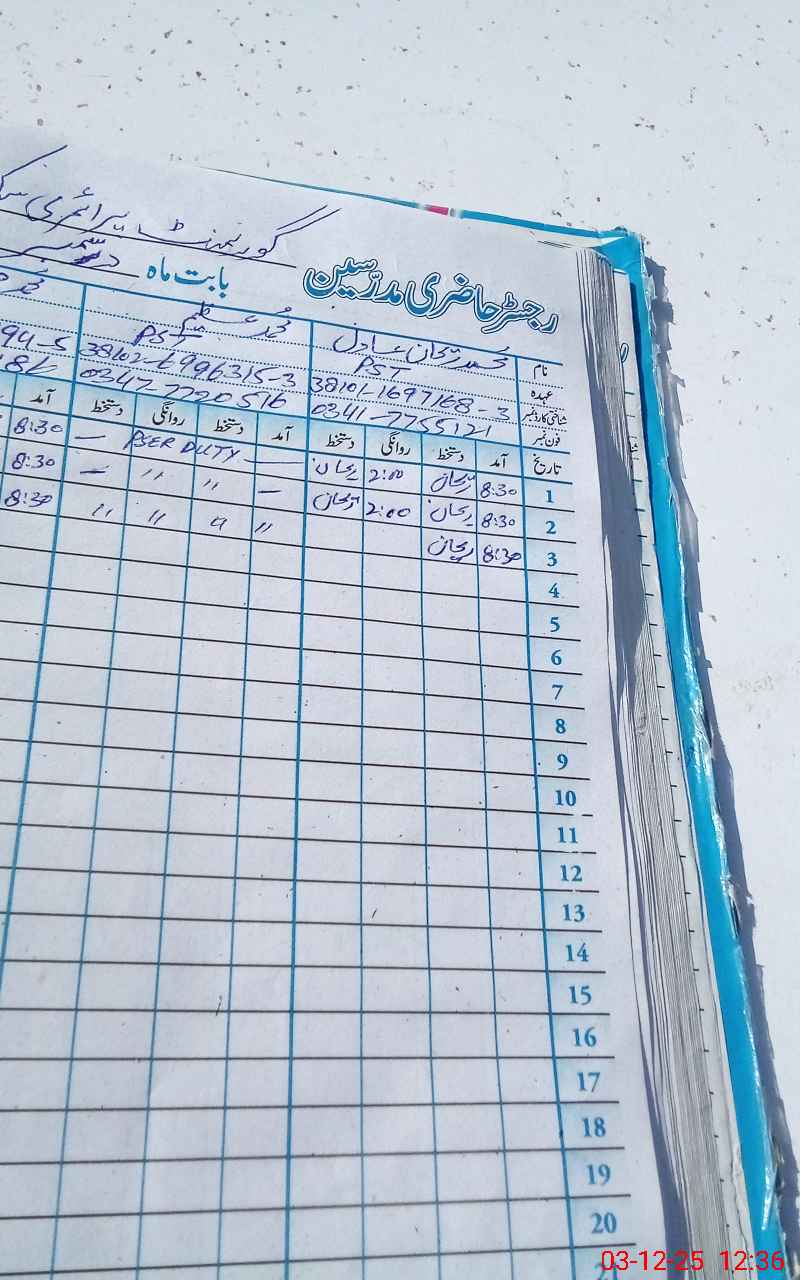 گورنمنٹ پرائمری
رجسٹر حاضری مدرّسین بابت ماہ دسمبر
نام محمد ریحان عادل محمد عظیم
عہدہ PST PST
شناختی کارڈ نمبر 38101-1697168-3 38102-6996315-3 94-5
فون نمبر 0341-7755121 0347-7720516 186
تاریخ آمد دستخط روانگی دستخط آمد دستخط روانگی دستخط آمد
1 8:30 ریحان 2:00 ریحان — PSER DUTY — 8:30
2 8:30 ریحان 2:00 ریحان — 〃 〃 — 8:30
3 8:30 ریحان 〃 〃 〃 〃 8:30
4
5
6
7
8
9
10
11
12
13
14
15
16
17
18
19
20
21
03-12-25 12:36